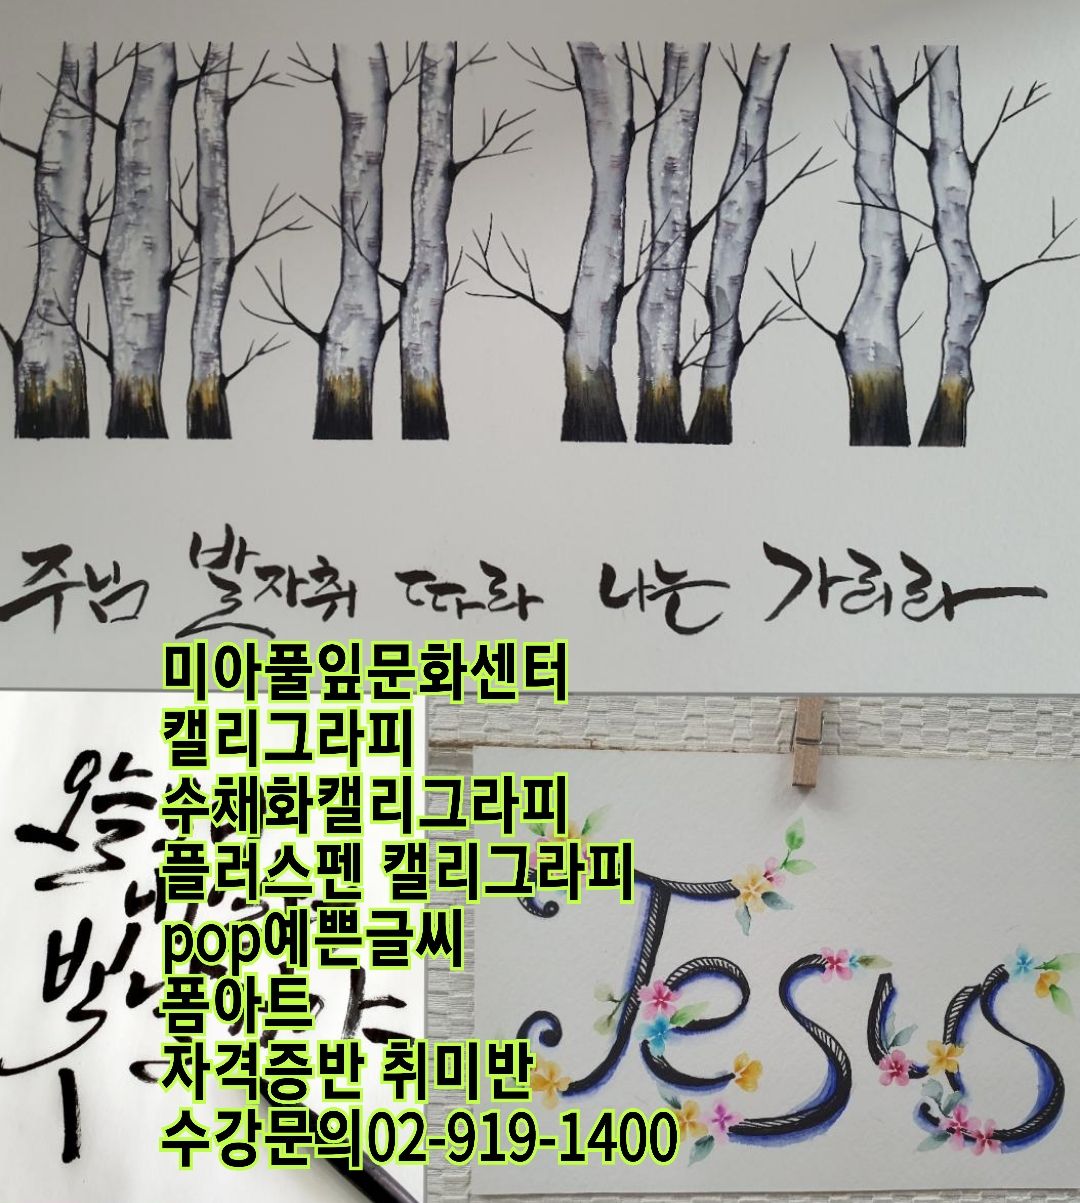 주님 발자취 따라 나는 가리라
미아풀잎문화센터
캘리그라피
수채화캘리그라피
플러스펜 캘리그라피
pop예쁜글씨
폼아트
자격증반 취미반
수강문의02-919-1400
오늘
Jesus